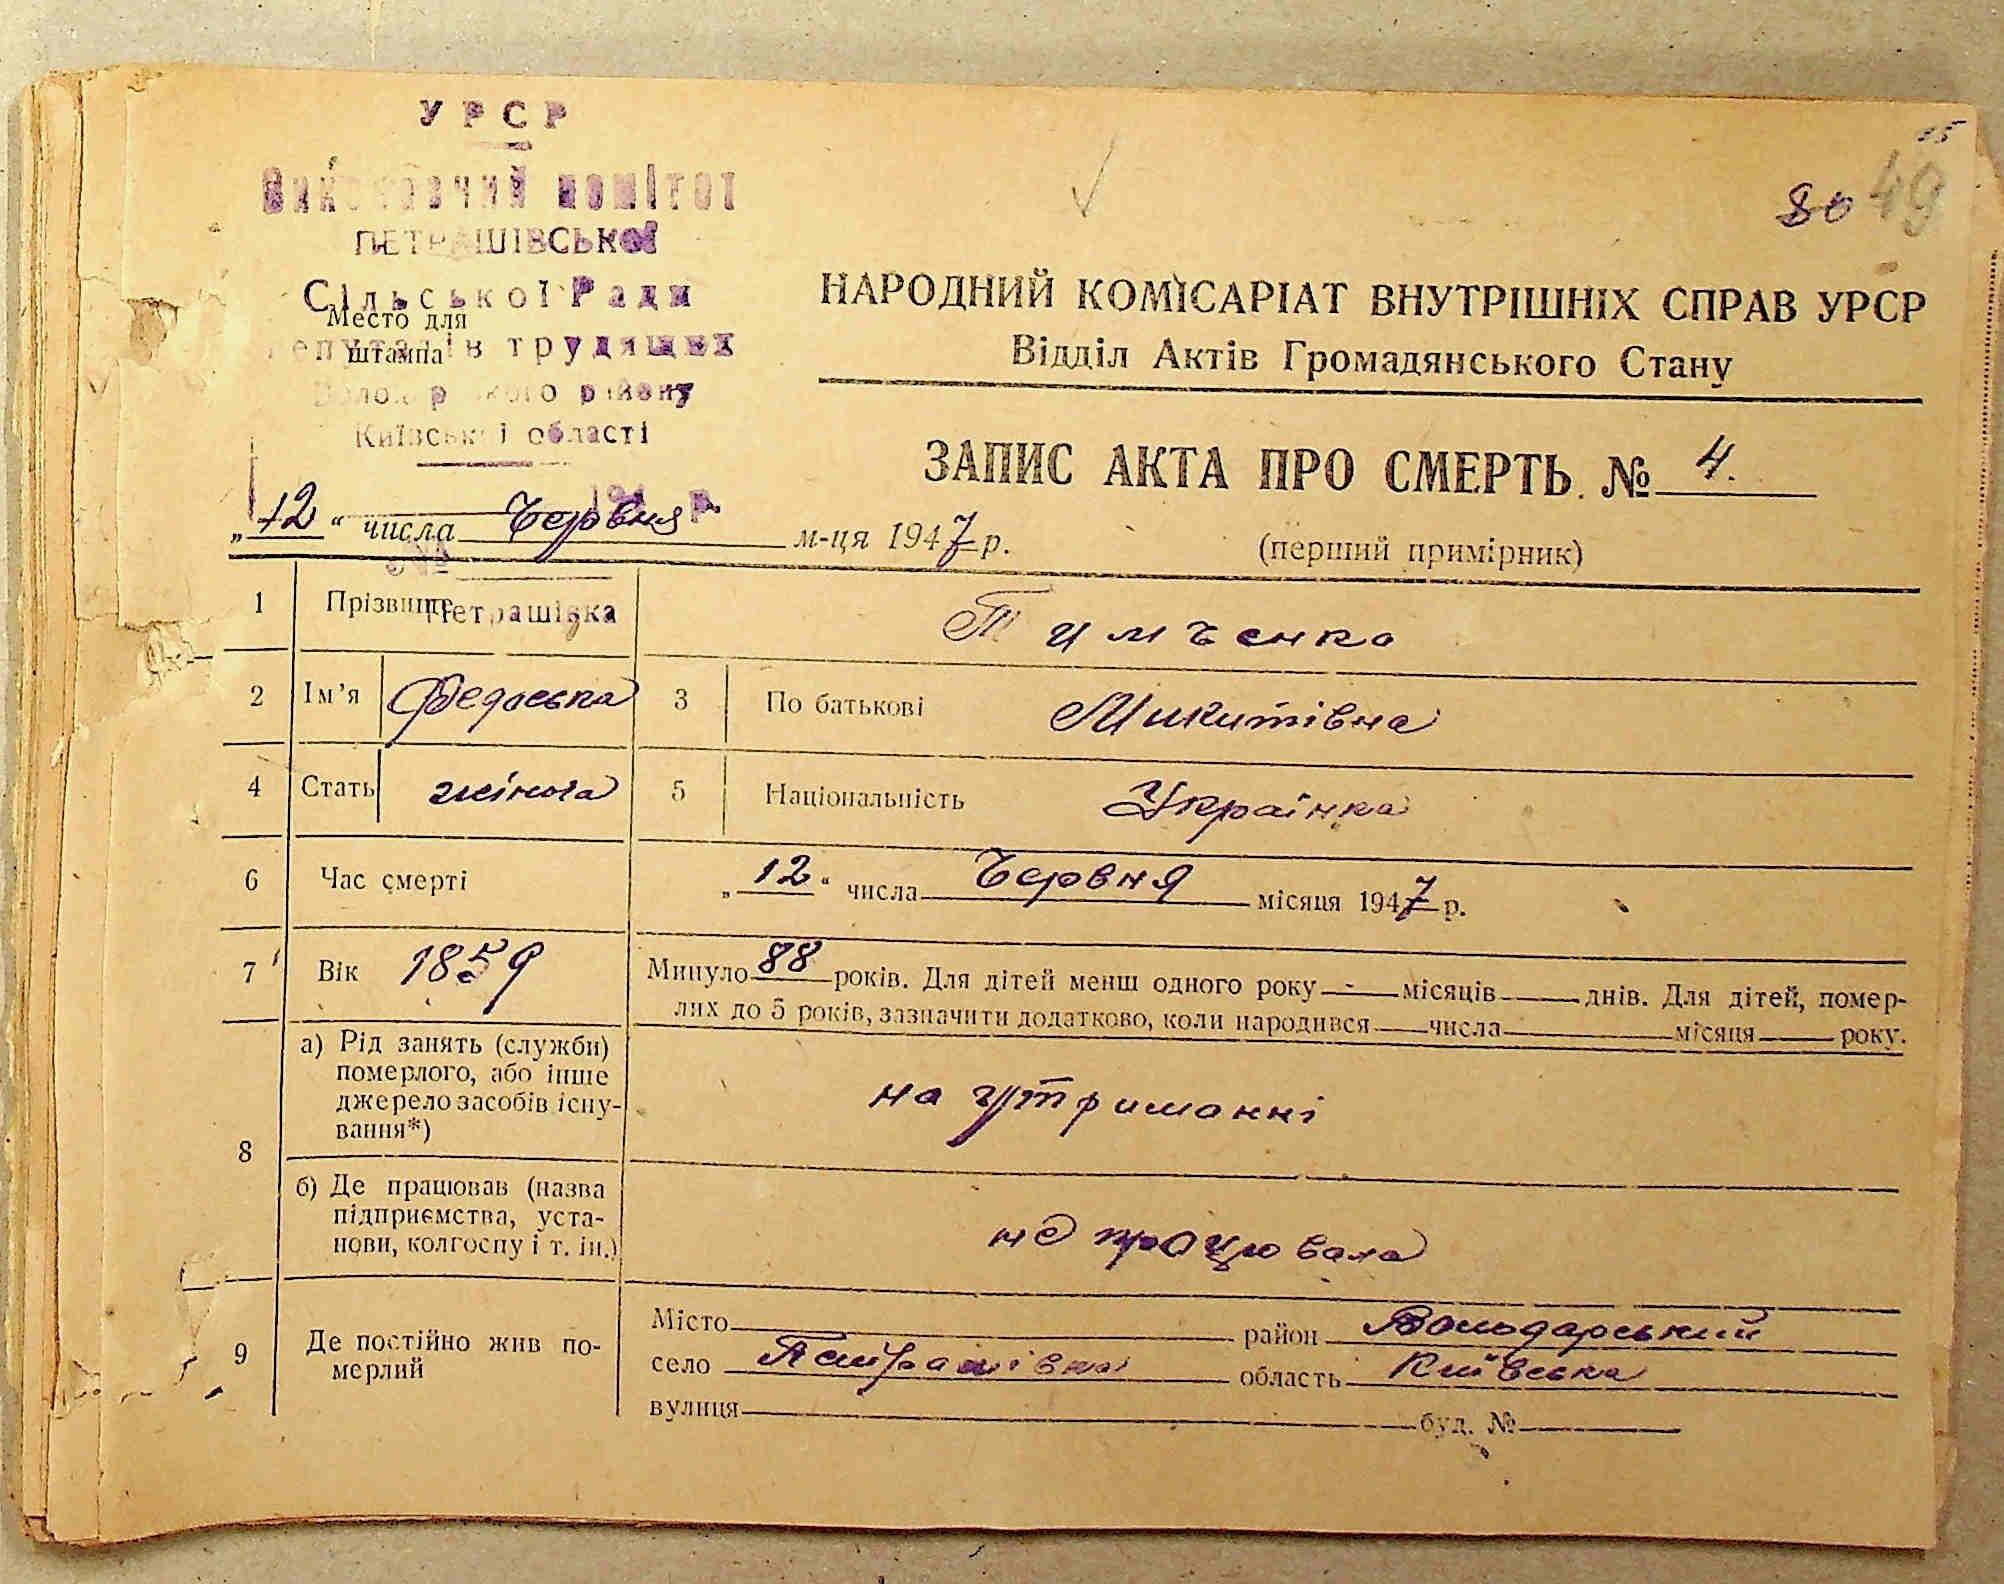 УРСР
Виконавчий комітет
ПЕТРАШІВСЬКОЇ
Сільської Ради
Место для
штампа
депутатів трудящих
Володарського району
Київської області
194 р.
№
Петрашівка
15
80 49
НАРОДНИЙ КОМІСАРІАТ ВНУТРІШНІХ СПРАВ УРСР
Відділ Актів Громадянського Стану
ЗАПИС АКТА ПРО СМЕРТЬ № 4.
„12“ числа Червня м-ця 1947 р.
(перший примірник)
1 Прізвище Тимченко
2 Ім’я Федоська 3 По батькові Микитівна
4 Стать жіноча 5 Національність Українка
6 Час смерті „12“ числа Червня місяця 1947 р.
7 Вік 1859 Минуло 88 років. Для дітей менш одного року - місяців днів. Для дітей, помер-
лих до 5 років, зазначити додатково, коли народився числа місяця року.
8 а) Рід занять (служби)
померлого, або інше
джерело засобів існу-
вання*)
на утриманні
б) Де працював (назва
підприємства, уста-
нови, колгоспу і т. ін.)
не працювала
9 Де постійно жив по-
мерлий
Місто район Володарський
село Петрашівка область Київська
вулиця буд. №